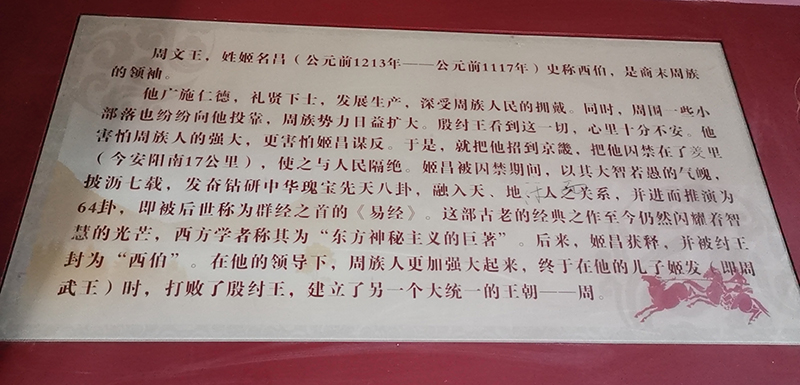 周文王，姓姬名昌（公元前1213年——公元前1117年）史称西伯，是商末周族
的领袖。
他广施仁德，礼贤下士，发展生产，深受周族人民的拥戴。同时，周围一些小
部落也纷纷向他投靠，周族势力日益扩大。殷纣王看到这一切，心里十分不安。他
害怕周族人的强大，更害怕姬昌谋反。于是，就把他招到京畿，把他囚禁在了羑里
（今安阳南17公里），使之与人民隔绝。姬昌被囚禁期间，以其大智若愚的气魄，
披沥七载，发奋钻研中华瑰宝先天八卦，融入天、地、人之关系，并进而推演为
64卦，即被后世称为群经之首的《易经》。这部古老的经典之作至今仍然闪耀着智
慧的光芒，西方学者称其为“东方神秘主义的巨著”。后来，姬昌获释，并被纣王
封为“西伯”。在他的领导下，周族人更加强大起来，终于在他的儿子姬发（即周
武王）时，打败了殷纣王，建立了另一个大统一的王朝——周。